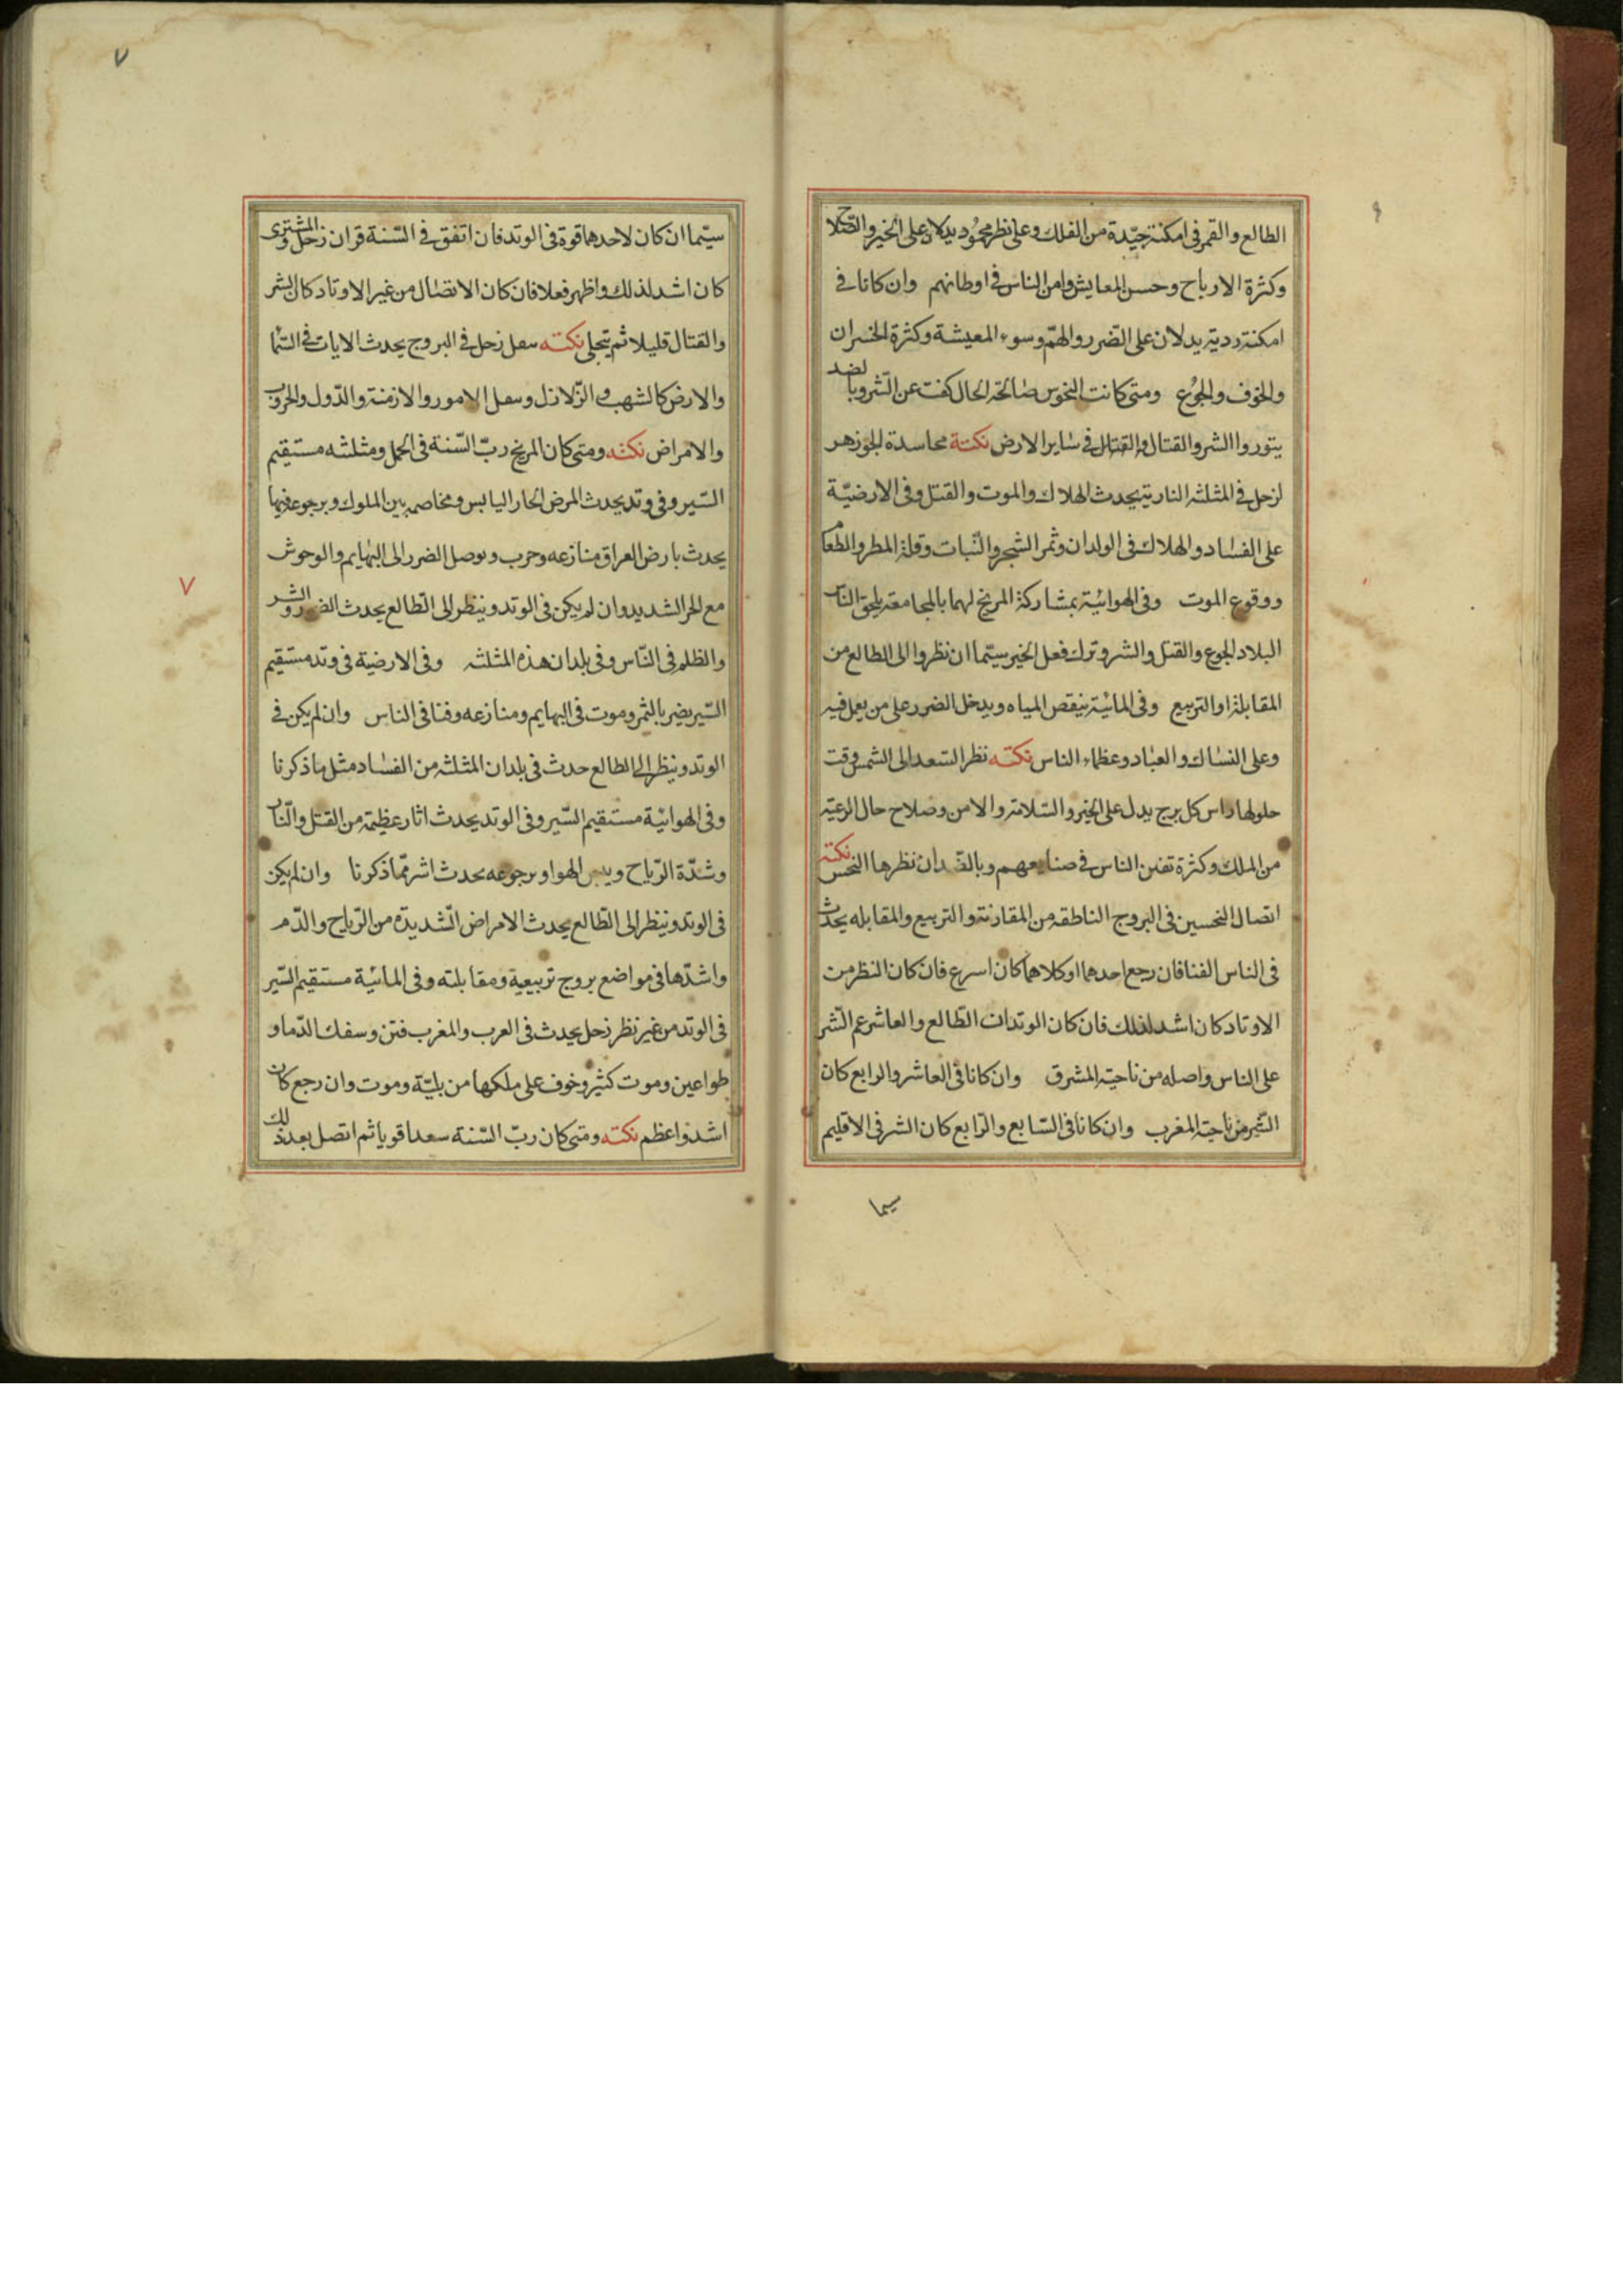 الطالع والقمر فى امكنة جيّدة من الفلك وعلى نظر محمود يدلان على الخير والصّلاح
وكثرة الارباح وحسن المعايش وامن الناس فى اوطانهم وان كانا فى
امكنة ردية يدلان على الضّرر والهمّ وسوء المعيشة وكثرة الخسران
والخوف والجوع ومتى كانت النحوس صالحة الحال كفت عن الشّر وبالضد
يثوروا الشر والقتال والقتل فى ساير الارض نكتة محاسدة الجوزهر
لزحل فى المثلثه النارية يحدث الهلاك والموت والقتل وفى الارضيّة
على الفساد والهلاك فى الولدان وثمر الشجر والنّبات وقلة المطر والطعام
ووقوع الموت وفى الهوائيّة بمشاركة المريخ لهما بالمجامعة يلحق الناس
البلاد الجوع والقتل والشر وترك فعل الخير سيّما ان نظروا الى الطالع من
المقابلة او التربيع وفى المائيّة ينقص المياه ويدخل الضرر على من يعمل فيه
وعلى النسّاك والعبّاد وعظماء الناس نكته نظر السّعد الى الشمس وقت
حلولها راس كل برج يدل على الخير والسّلامة والامن وصلاح حال الرعيّة
من الملك وكثرة تفنن الناس فى صنايعهم وبالضّد ان نظرها النحس نكته
اتصال النحسين فى البروج الناطقه من المقارنة والتربيع والمقابله يحدث
فى الناس الفنا فان رجع احدهما او كلاهما كان اسرع فان كان النظر من
الاوتاد كان اشد لذلك فان كان الوتدان الطّالع والعاشر عم الشّر
على الناس واصله من ناحية المشرق وان كانا فى العاشر والرابع كان
الشّر من ناحية المغرب وان كانا فى السّابع والرّابع كان الشر فى الاقليم
سيما
٧
سيّما ان كان لاحدهما قوة فى الوتد فان اتفق فى السّنة قران زحل والمشترى
كان اشد لذلك واظهر فعلا فان كان الاتصال من غير الاوتاد كان الشر
والقتال قليلا ثم يتجلى نكته زحل فى البروج يحدث الايات فى السّما
والارض كالشهب والزّلازل الامور والازمنة والدّول والحروب
والامراض نكته ومتى كان المريخ ربّ السّنة فى الحمل ومثلثه مستقيم
السّير وفى وتد يحدث المرض الحار اليابس ومخاصمه بين الملوك وبرجوعه فيها
يحدث بارض العراق منازعه وحرب ويوصل الضرر الى البهايم والوحوش
مع الحر الشديد وان لم يكن فى الوتد وينظر الى الطّالع يحدث الضرر والشر
والظلم فى النّاس وفى بلدان هذه المثلثه وفى الارضية فى وتد مستقيم
السّير يضر بالثمر وموت فى البهايم ومنازعه وفنا فى الناس وان لم يكن فى
الوتد وينظر الى الطالع حدث فى بلدان المثلثه من الفساد مثل ما ذكرنا
وفى الهوائيّة مستقيم السّير وفى الوتد يحدث اثار عظيمة من القتل والنّار
وشدّة الرّياح ويبس الهوا وبرجوعه يحدث اشر ممّا ذكرنا وان لم يكن
فى الوتد وينظر الى الطّالع يحدث الامراض الشّديدة من الرّياح والدّم
واشدّها فى مواضع بروج تربيعية ومقابلته وفى المائيّة مستقيم السّير
فى الوتد من غير نظر زحل يحدث فى العرب والمغرب فتن وسفك الدّما و
طواعين وموت كثير وخوف على ملكها من بليّة وموت وان رجع كان
اشد واعظم نكته ومتى كان ربّ السّنة سعدا قويا ثم اتصل بعد ذلك
٧